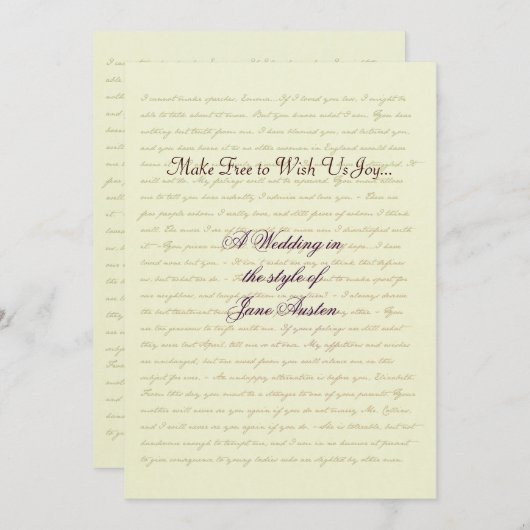 I cannot make speeches, Emma...If I loved you less, I might be
able to talk about it more. But you know what I am. You hear
nothing but truth from me. I have blamed you, and lectured you,
and you have borne it as no other woman in England would have
Make Free to Wish Us Joy...
will not do. My feelings will not be repressed. You must allow
me to tell you how ardently I admire and love you. ~ There are
few people whom I really love, and still fewer of whom I think
well. The more I see of the world, the more am I dissatisfied with
it. ~ You pierce my
A Wedding in
loved none but you. ~ It isn't what we say or think that defines
us, but what we do. ~
the style of
our neighbors, and laugh at them in
Jane Austen
the best treatment
are too generous to trifle with me. If your feelings are still what
they were last April, tell me so at once. My affections and wishes
are unchanged, but one word from you will silence me on this
subject for ever. ~ An unhappy alternative is before you, Elizabeth.
From this day you must be a stranger to one of your parents. Your
mother will never see you again if you do not marry Mr. Collins,
and I will never see you again if you do. ~ She is tolerable, but not
handsome enough to tempt me, and I am in no humor at present
to give consequence to young ladies who are slighted by other men.